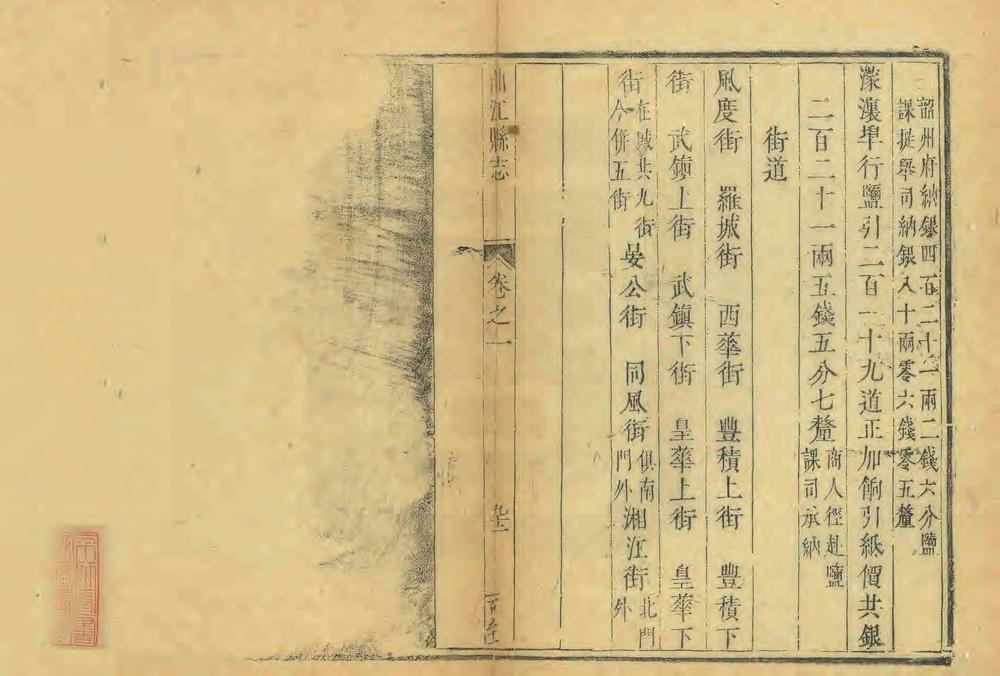 韶州府納銀四百二十二兩二錢六分鹽
課提舉司納銀八十兩零六錢零五釐
濛瀼埠行鹽引二百一十九道正加餉引紙價共銀
二百二十一兩五錢五分七釐商人徑赴鹽
課司承納
街道
風度街 羅城街 西華街 豐積上街 豐積下
街 武鎮上街 武鎮下街 皇華上街 皇華下
街在城共九街
今併五街 晏公街 同風街俱南
門外湘江街北門
外
曲江縣志 卷之一